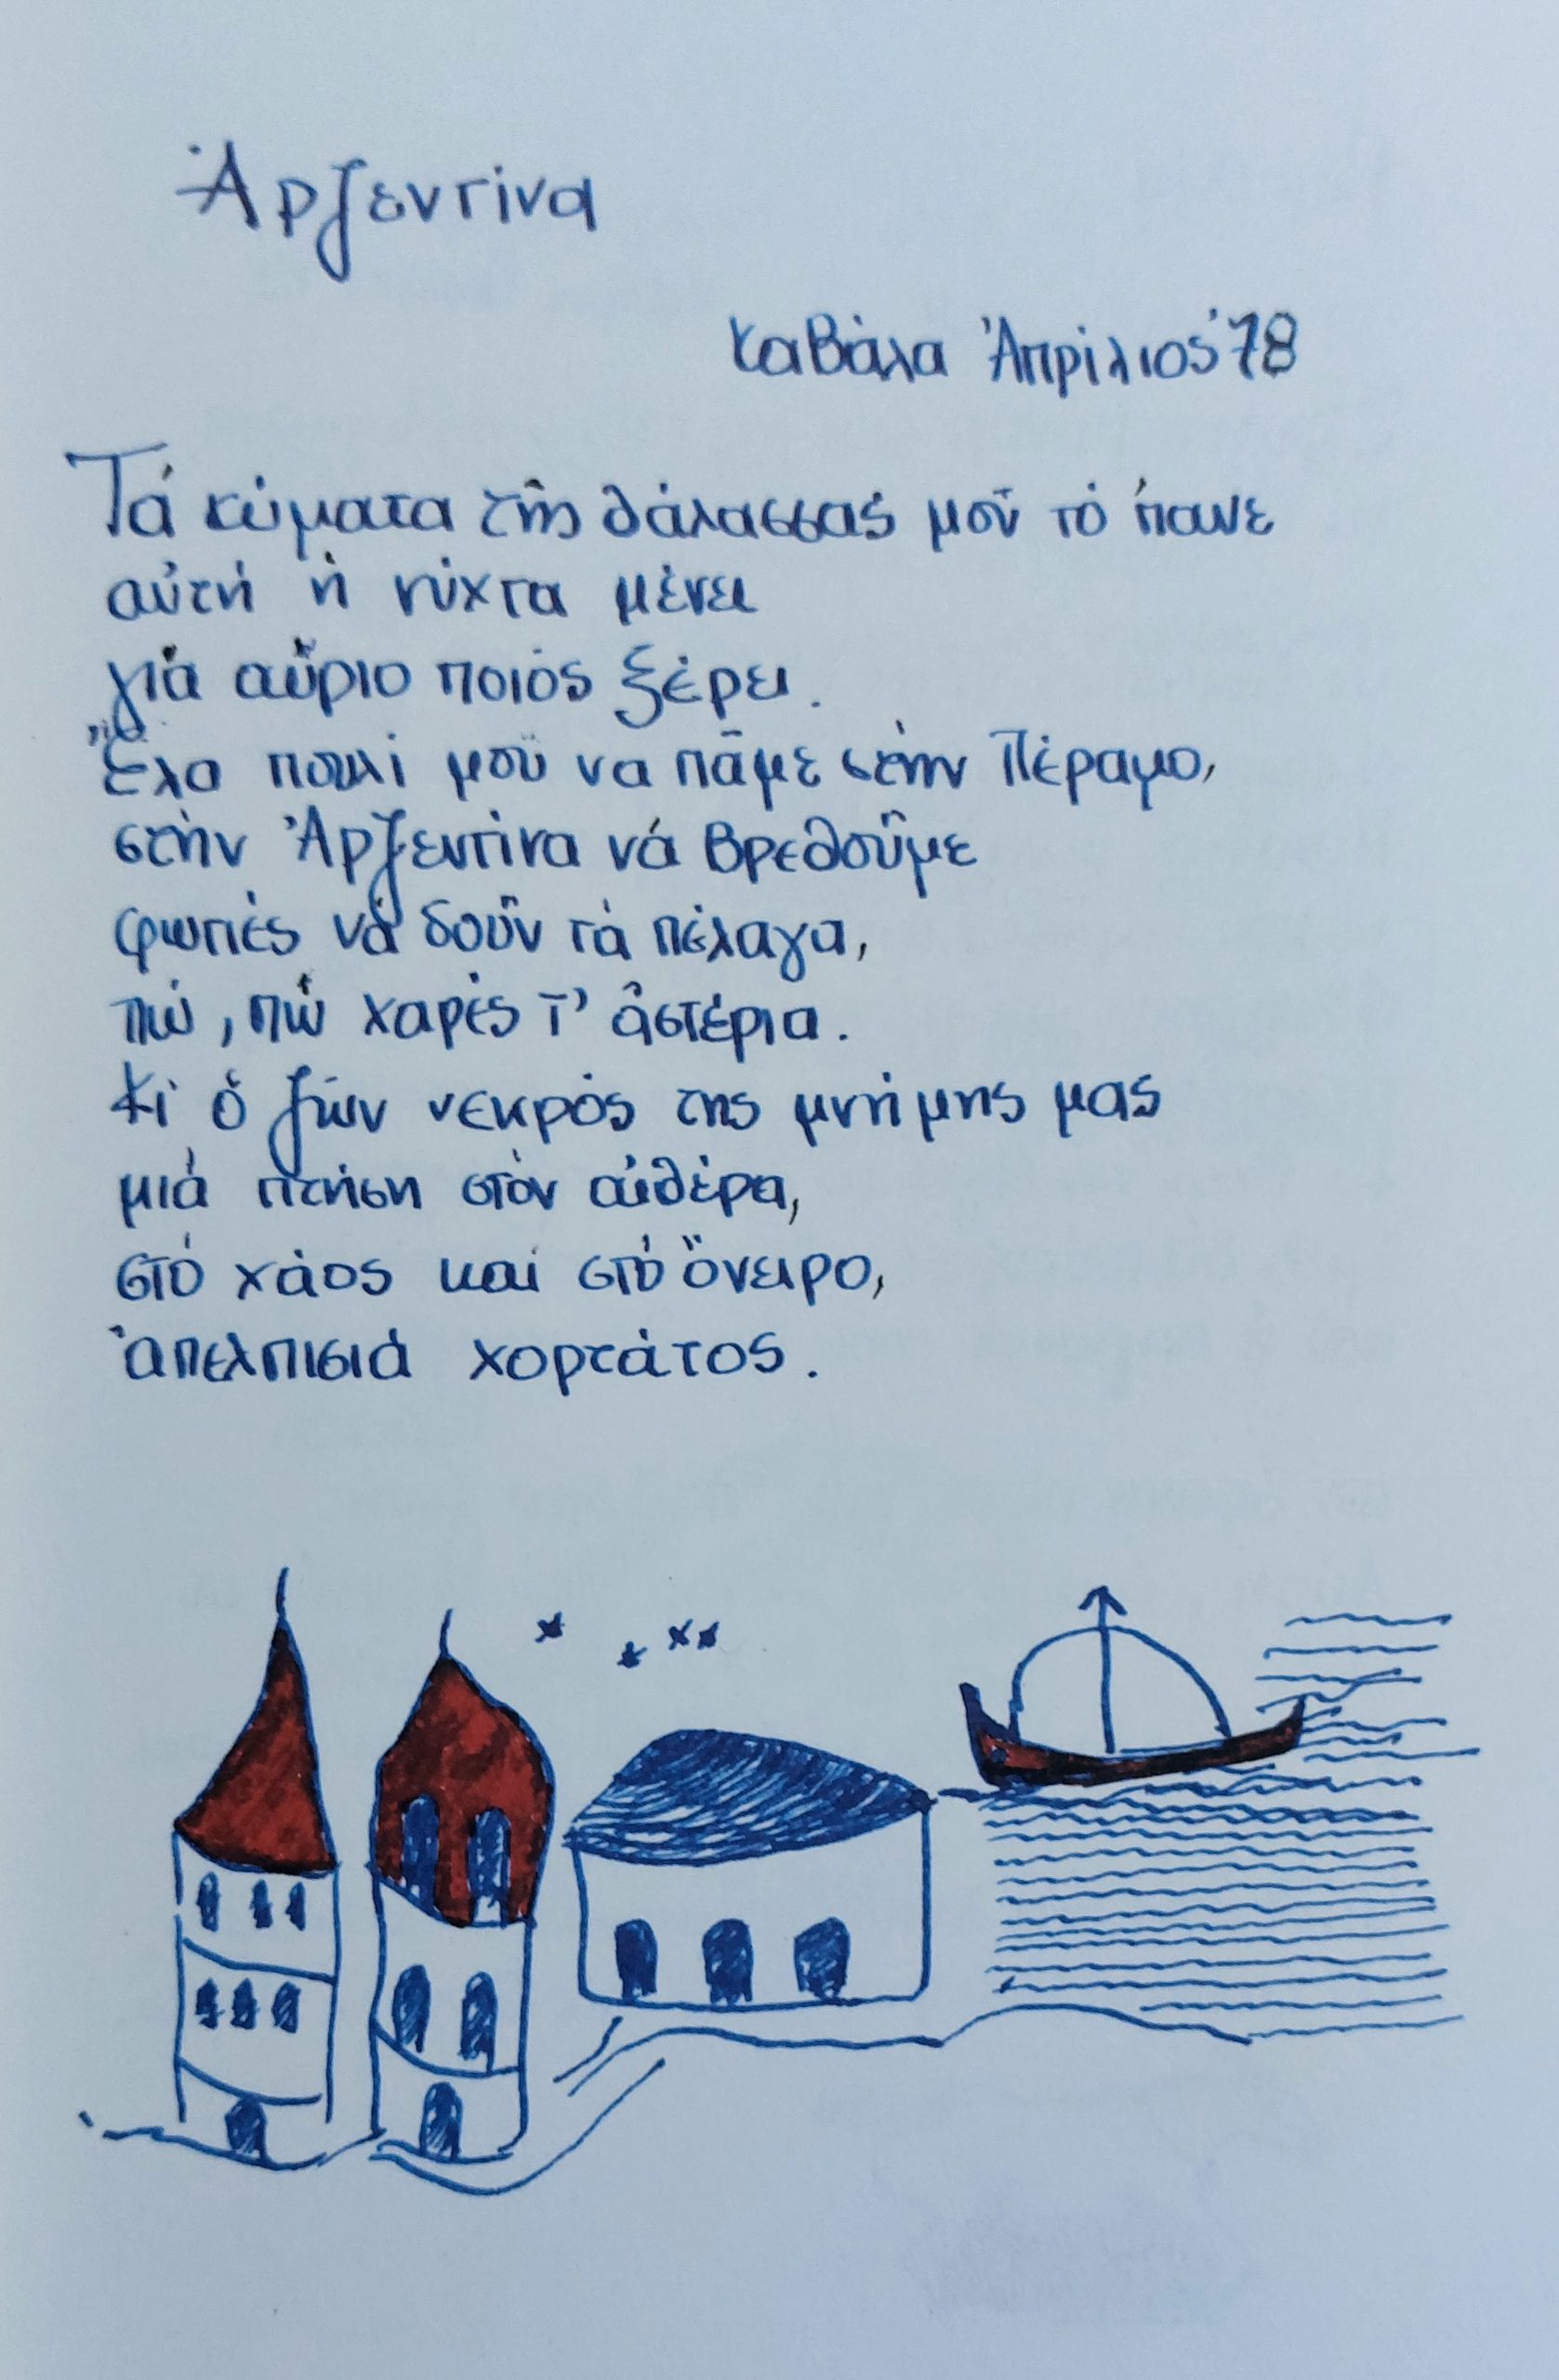 Ἀρζεντίνα
Καβάλα Ἀπρίλιος '78
Τά κύματα τῆς θάλασσας μοῦ τό 'πανε
αὐτή ἡ νύχτα μένει
γιά αὔριο ποιός ξέρει.
Ἔλα πουλί μοῦ να πᾶμε στήν Πέραμο,
στήν Ἀρζεντίνα νά βρεθοῦμε
φωτιές νά δοῦν τά πέλαγα,
πώ, πώ χαρές τ' ἀστέρια.
Κι ὁ ζῶν νεκρός της μνήμης μας
μιά πτήση στόν αἰθέρα,
στό χάος καί στό ὄνειρο,
ἀπελπισιά χορτάτος.